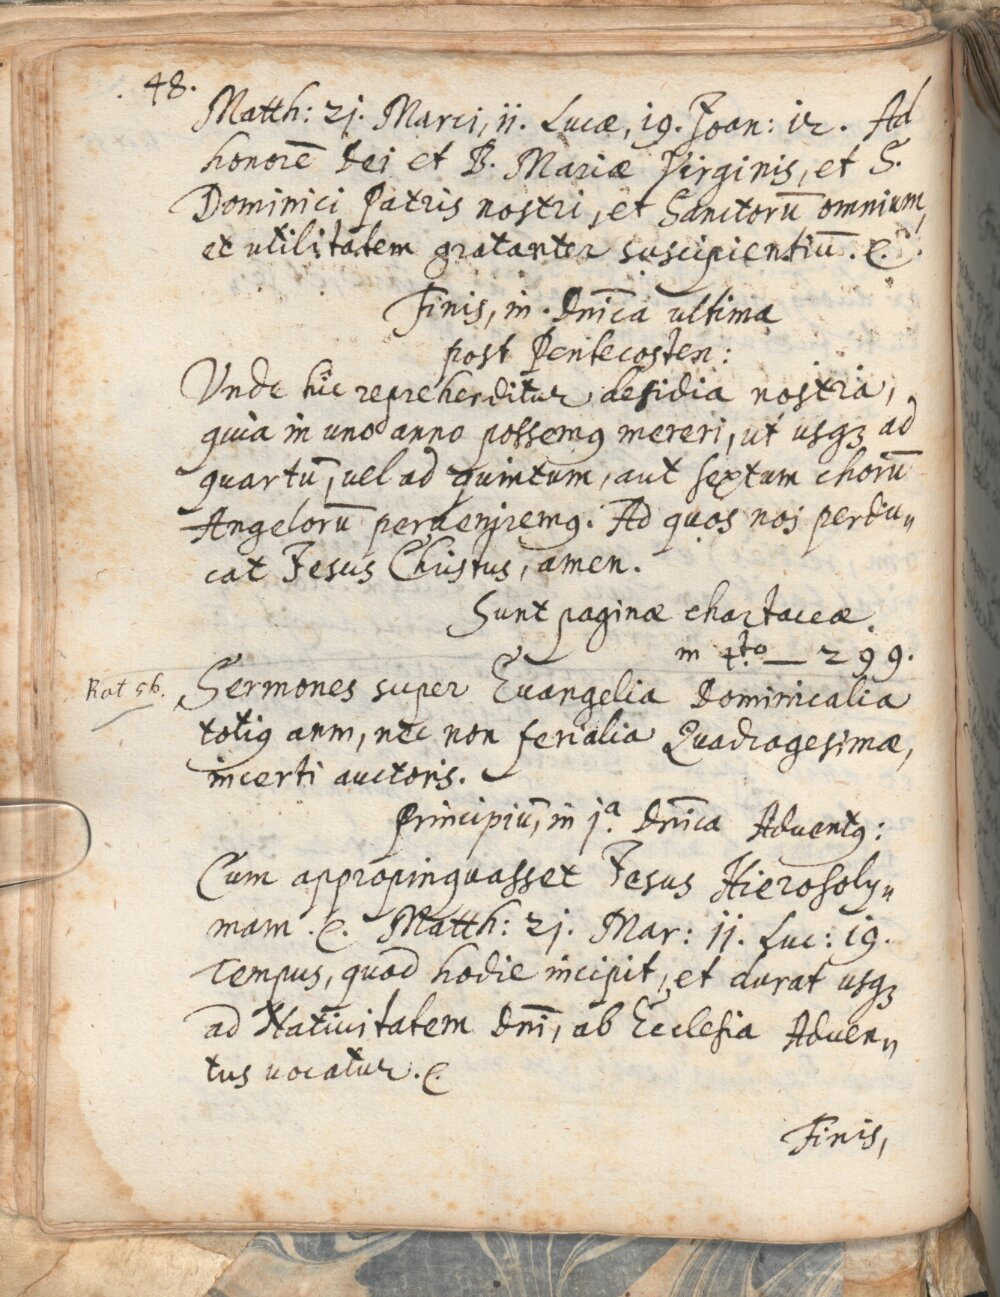 48.
Matth: 21. Marci, 11. Lucæ, 19. Joan: 12. Ad
honorē Dei et B. Mariæ Virginis, et S.
Dominici Patris nostri, et Sanctorū omnium,
et utilitatem gratanter suscipientiū. &.
Finis, in Dn̄ica ultima
post Pentecosten:
Unde hic reprehenditur desidia nostra,
quia in uno anno possemꝰ mereri, ut usqꝫ ad
quartū, vel ad quintum, aut sextum chorū
Angelorū perveniremꝰ. Ad quos nos perdu„
cat Jesus Christus, amen.
Sunt paginæ chartaceæ
in 4to — 299.
Rot 56. Sermones super Evangelia Dominicalia
totiꝰ anni, nec non ferialia Quadragesimæ,
incerti auctoris.
Principiū, in jª. Dn̄ica Adventꝰ:
Cum appropinquasset Jesus Hierosoly„
mam. &. Matth: 21. Mar: 11. Luc: 19.
Tempus, quod hodie incipit, et durat usqꝫ
ad Nativitatem Dn̄i, ab Ecclesia Adven„
tus vocatur. &
Finis,